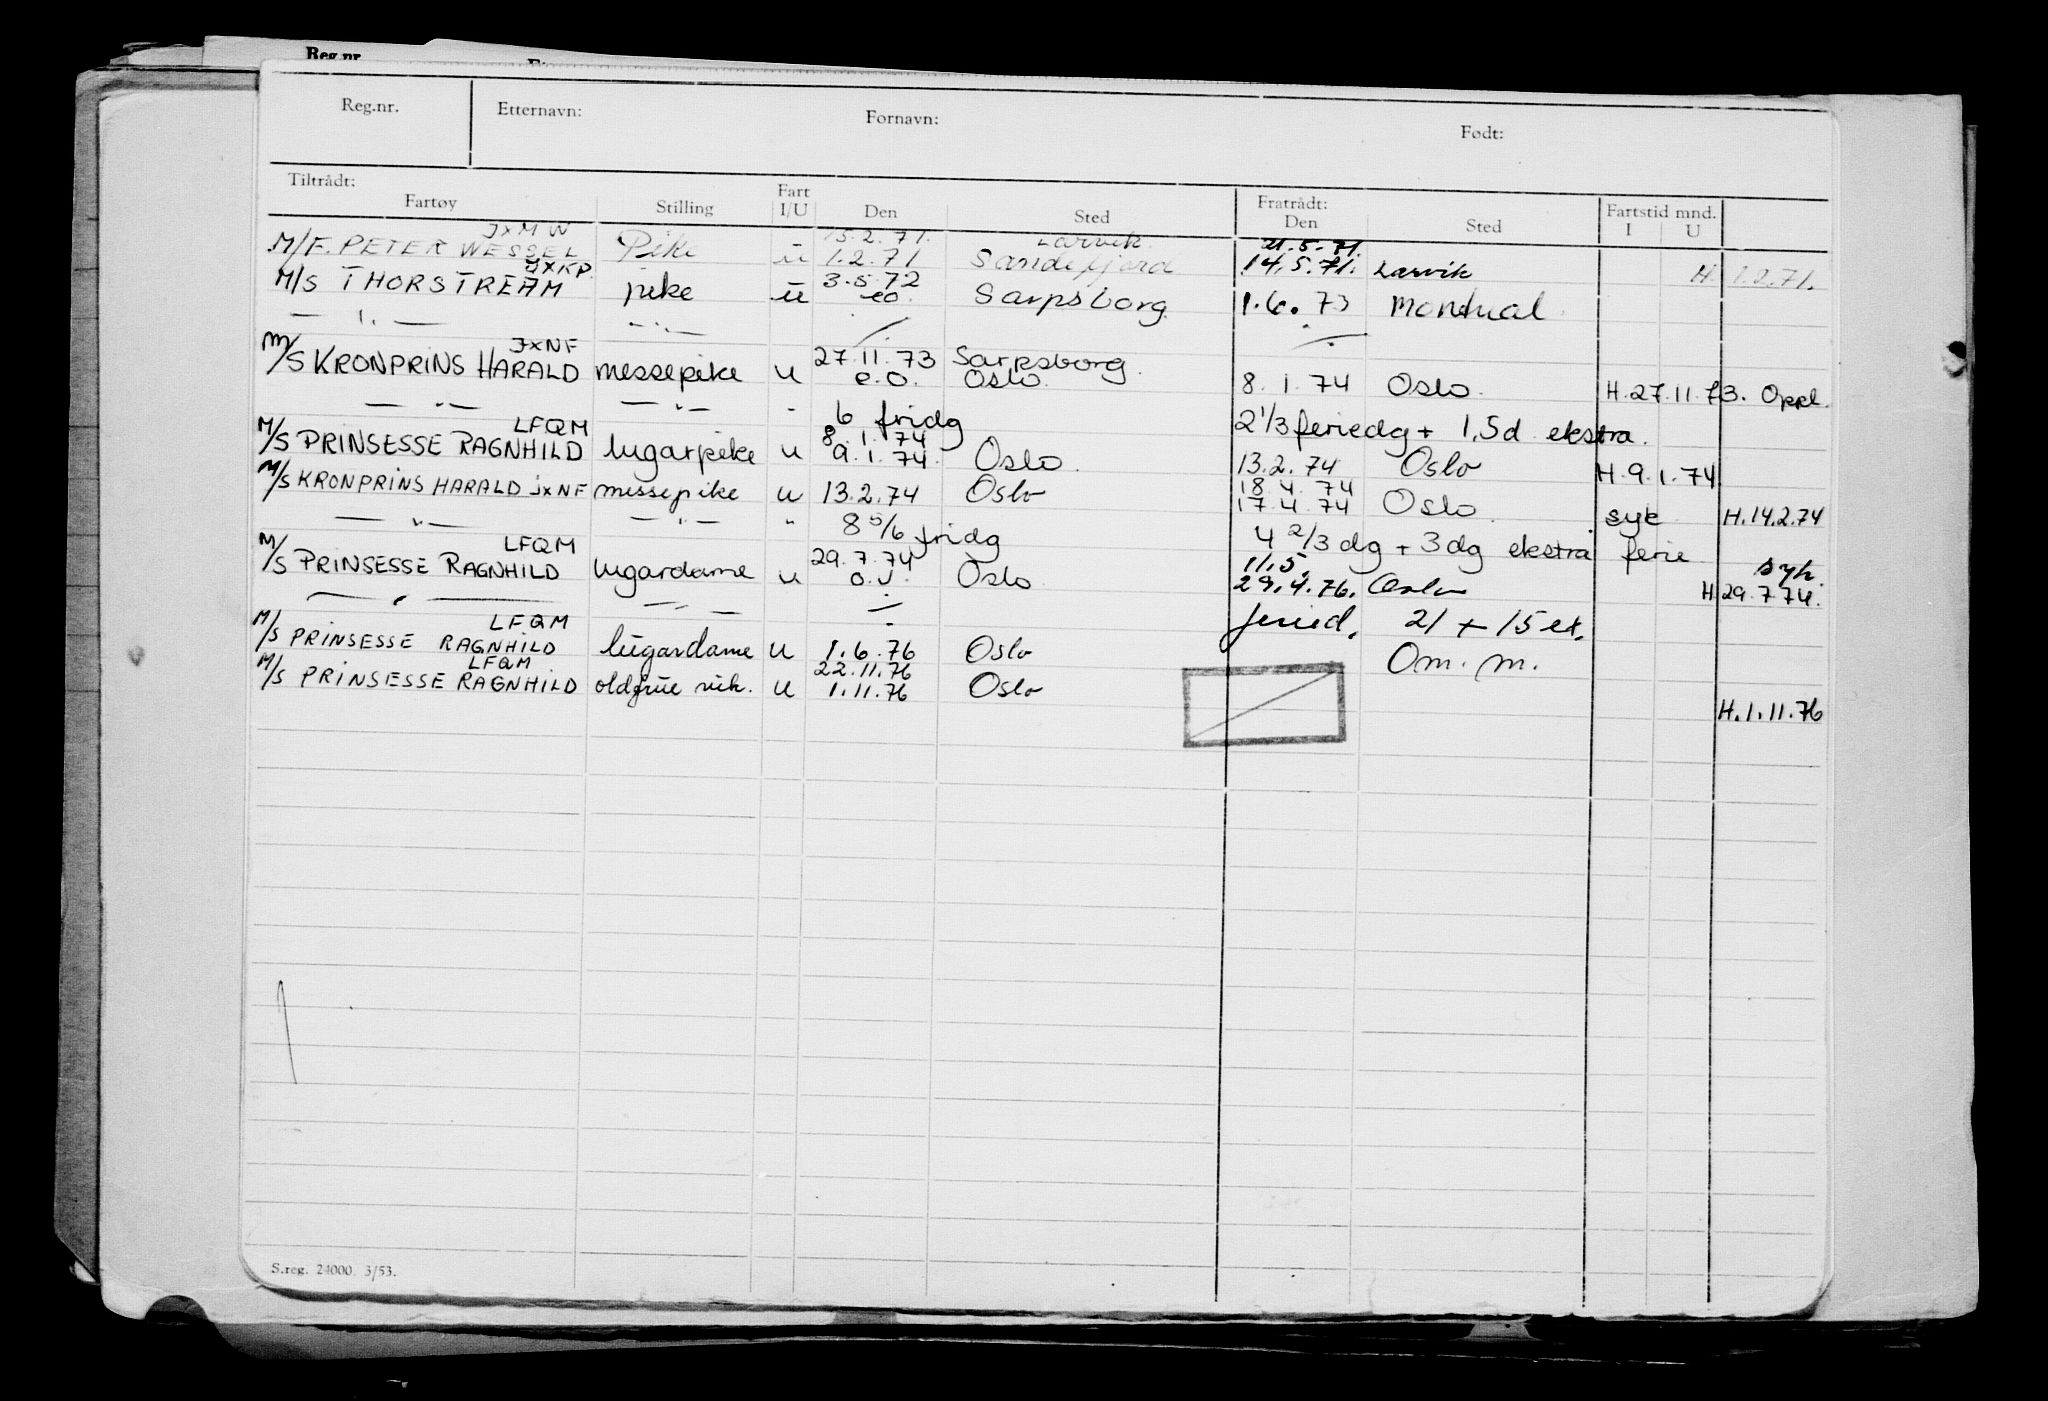 Reg.nr.
Reg.nr. Etternavn: Fornavn: Født:
Tiltrådt: Fratrådt:
Fartøy Stilling Fart I/U Den Sted Den Sted Fartstid mnd. I U
JXMW 15.2.71. Larvik. 21.5.71.
M/F. PETER WESSEL Pike u 1.2.71 Sandefjord 14.5.71. Larvik H. 1.2.71.
JXKP 3.5.72
M/S THORSTREAM pike u eo. Sarpsborg 1.6.73 Montreal
— " — — " —
JXNF 27.11.73 Sarpsborg.
M/S KRONPRINS HARALD messepike u e.o. Oslo. 8.1.74 Oslo. H.27.11.73. Oppl.
— " — — " — " 6 fridg 2 1/3 feriedg + 1,5d ekstra.
LFQM 8.1.74
M/S PRINSESSE RAGNHILD lugarpike u 9.1.74. Oslo. 13.2.74 Oslo H.9.1.74
18.4.74
M/S KRONPRINS HARALD JXNF messepike u 13.2.74 Oslo 17.4.74 Oslo. syk H.14.2.74
— " — — " — " 8 5/6 fridg 4 2/3 dg + 3 dg ekstra ferie
LFQM 29.7.74 11.5. syk.
M/S PRINSESSE RAGNHILD lugardame u o.v. Oslo 29.4.76. Oslo H.29.7.74.
— " — — " — feried. 21 + 15 ex.
LFQM
M/S PRINSESSE RAGNHILD lugardame u 1.6.76 Oslo Om. m.
LFQM 22.11.76
M/S PRINSESSE RAGNHILD oldfrue vik. u 1.11.76 Oslo H.1.11.76
S.reg. 24000. 3/53.